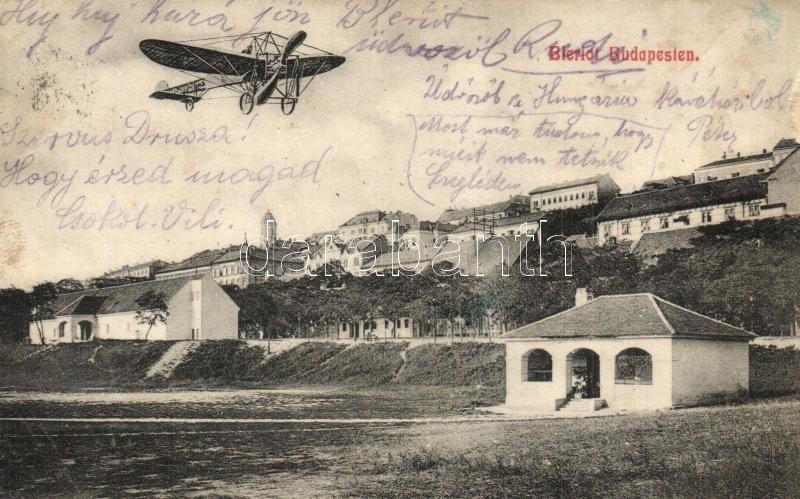 Bleriot
üdvözöl Rudi
Bleriot Budapesten.
Üdvözöl a Hungaria Kávéházból
Péter
Most már tudom, hogy
miért nem tetszik
Czegléden
Szervus Drusza!
Hogy érzed magad
Csókol. Vili.
darabanth